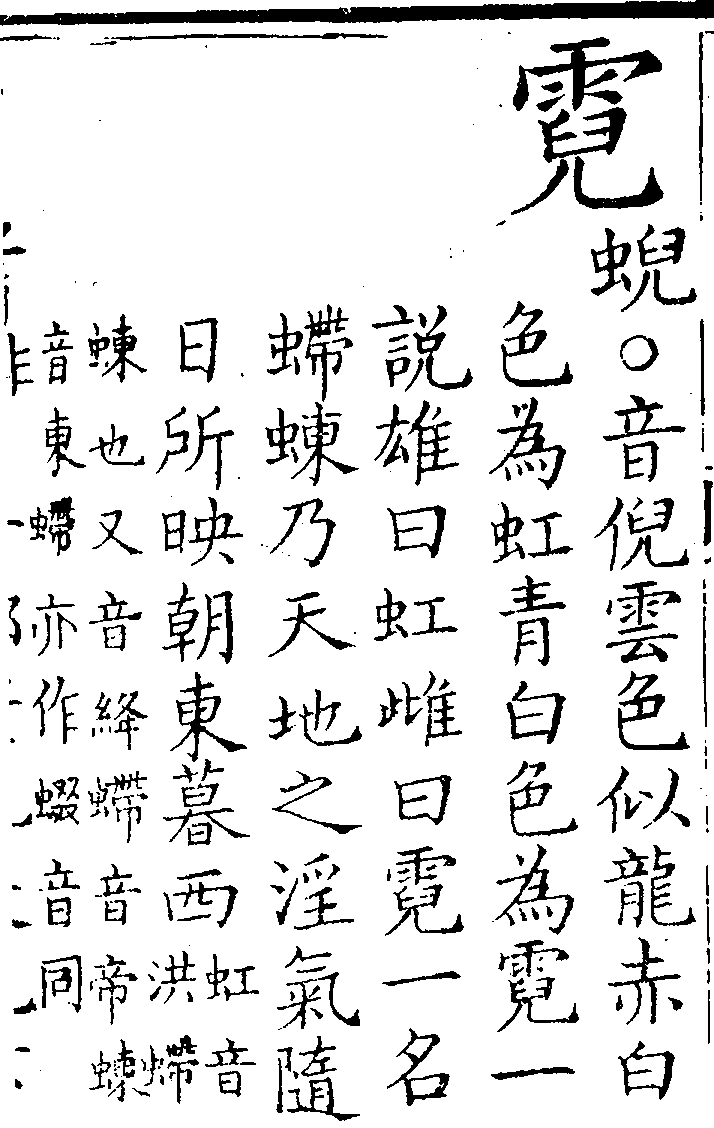 霓
蜺○音倪雲色似龍赤白
色為虹青白色為霓一
説雄曰虹雌曰霓一名
螮蝀乃天地之淫氣隨
日所映朝東暮西
虹音
洪螮
蝀也又音絳螮音帝蝀
音東螮亦作蝃音同